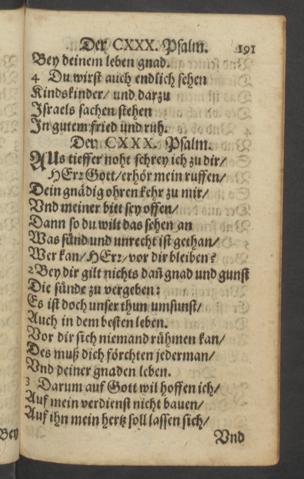 Der CXXX. Psalm. 191
Bey deinem leben gnad.
4 Du wirst auch endlich sehen
Kindskinder/ und darzu
Israels sachen stehen
In gutem fried und ruh.
Der CXXX. Psalm.
AUs tieffer noht schrey ich zu dir/
HErr Gott/ erhör mein ruffen/
Dein gnädig ohren kehr zu mir/
Vnd meiner bitt sey offen/
Dann so du wilt das sehen an
Was sünd und unrecht ist gethan/
Wer kan/ HErr/ vor dir bleiben?
2 Bey dir gilt nichts dañ gnad und gunst
Die sünde zu vergeben:
Es ist doch unser thun umsunst/
Auch in dem besten leben.
Vor dir sich niemand rühmen kan/
Des muß dich förchten jederman/
Vnd deiner gnaden leben.
3 Darum auf Gott wil hoffen ich/
Auf mein verdienst nicht bauen/
Auf ihn mein hertz soll lassen sich/
Vnd
Bey